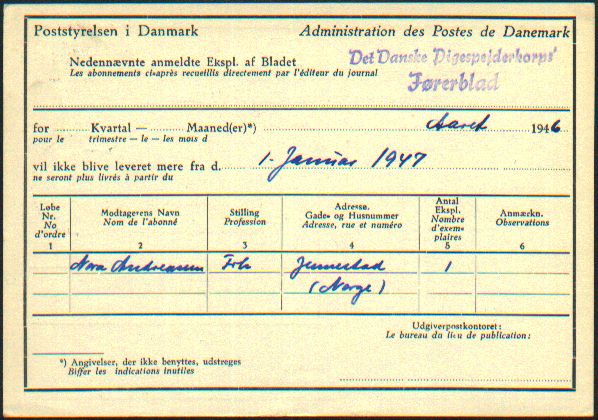 Poststyrelsen i Danmark
Administration des Postes de Danemark
Nedennævnte anmeldte Ekspl. af Bladet
Les abonnements ci-après recueillis directement par l'éditeur du journal
Det Danske Pigespejderkorps'
Førerblad
for Kvartal — Maaned(er)*) Aaret 1946
pour le trimestre — le — les mois d
vil ikke blive leveret mere fra d. 1. Januar 1947
ne seront plus livrés à partir du
Løbe Nr. No d'ordre 1
Modtagerens Navn Nom de l'abonné 2
Stilling Profession 3
Adresse. Gade- og Husnummer Adresse, rue et numéro 4
Antal Ekspl. Nombre d'exemplaires 5
Anmærkn. Observations 6
Nora Andreassen Frk Jennestad 1
(Norge)
Udgiverpostkontoret:
Le bureau du lieu de publication:
*) Angivelser, der ikke benyttes, udstreges
Biffer les indications inutiles